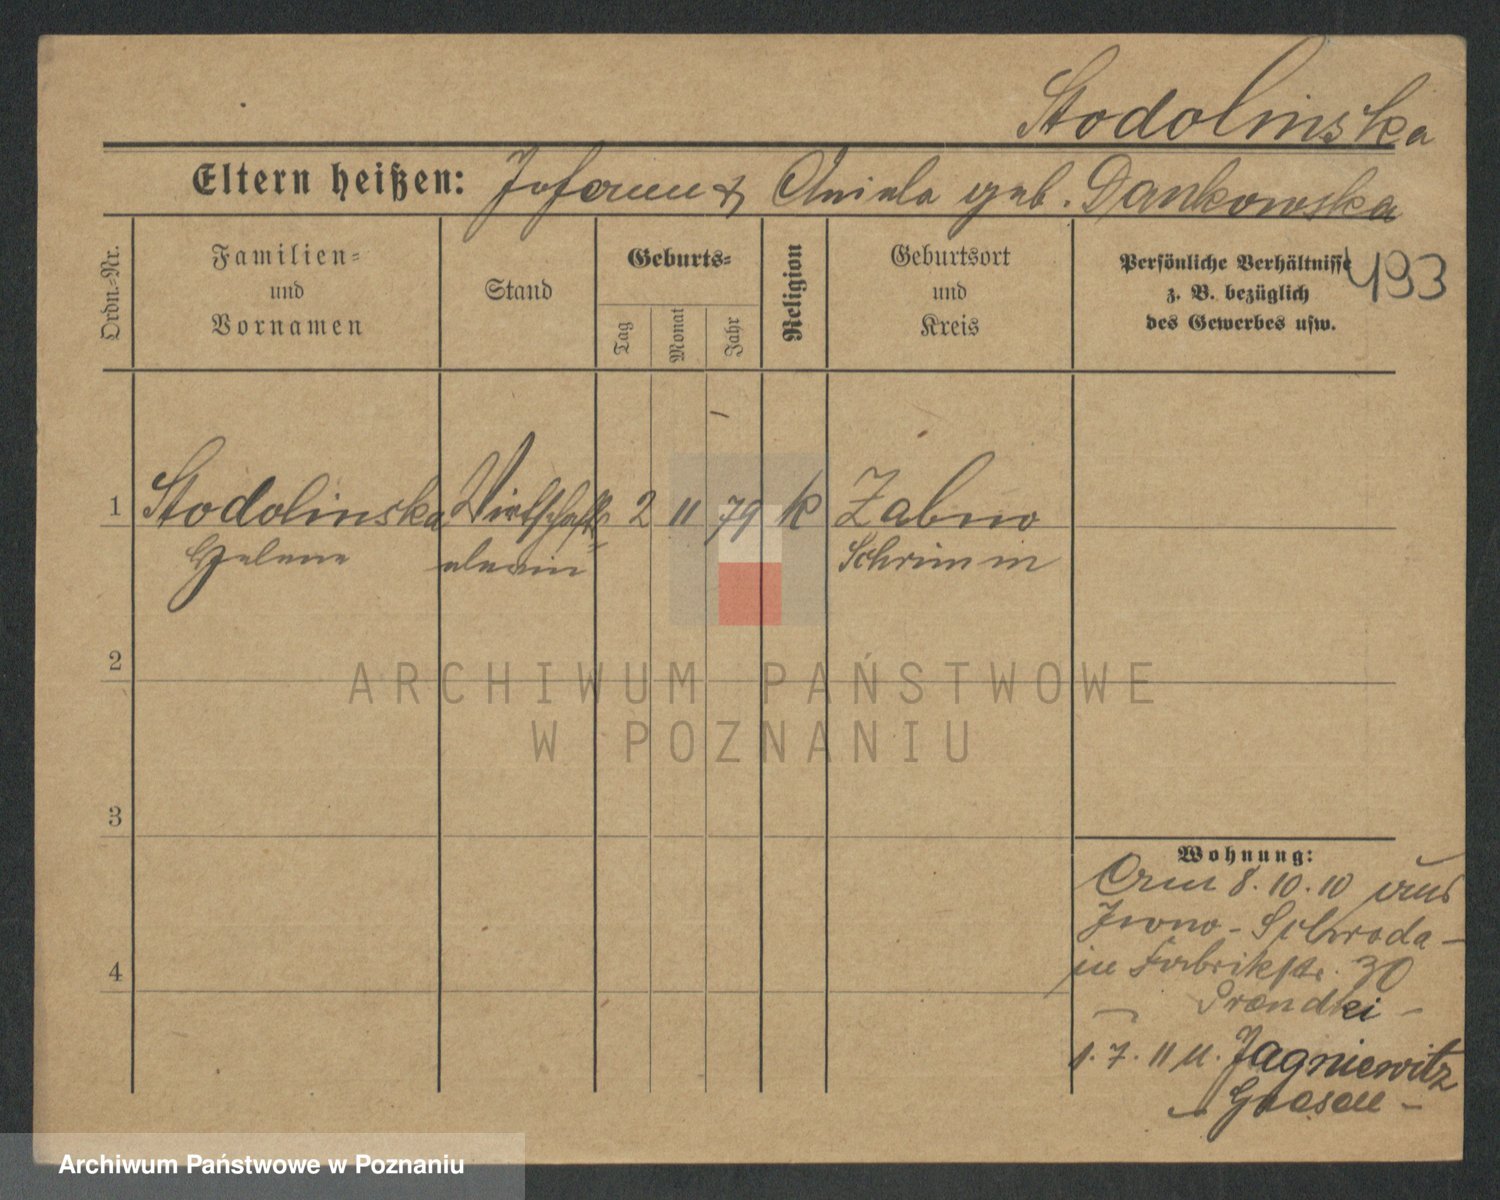 Stodolinska
Eltern heißen: Johann & Aniela geb. Dankowska
Ordn.-Nr.
Familien-
und
Vornamen
Stand
Geburts-
Tag
Monat
Jahr
Religion
Geburtsort
und
Kreis
Persönliche Verhältnisse
z. B. bezüglich
des Gewerbes usw.
493
1 Stodolinska Wirtschafts- 2 11 79 k Zabno
Helene elevin Schrimm
2
ARCHIWUM PAŃSTWOWE
W POZNANIU
3
4
Wohnung:
8.10.10 aus
Iwno - Schroda -
in Fabrikstr. 30
1.7.11 n. Jagniewitz
Archiwum Państwowe w Poznaniu